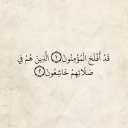 قَدْ أَفْلَحَ الْمُؤْمِنُونَ ١ الَّذِينَ هُمْ فِي
صَلَاتِهِمْ خَاشِعُونَ ٢